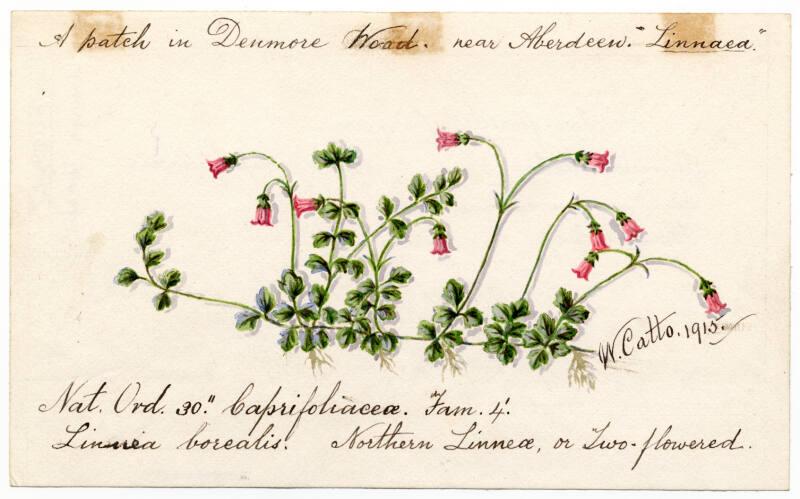 A patch in Denmore Wood. near Aberdeen. "Linnaea."
W. Catto. 1915.
Nat. Ord. 30." Caprifoliaceæ. Fam. 4.
Linnea borealis. Northern Linneæ, or Two-flowered.